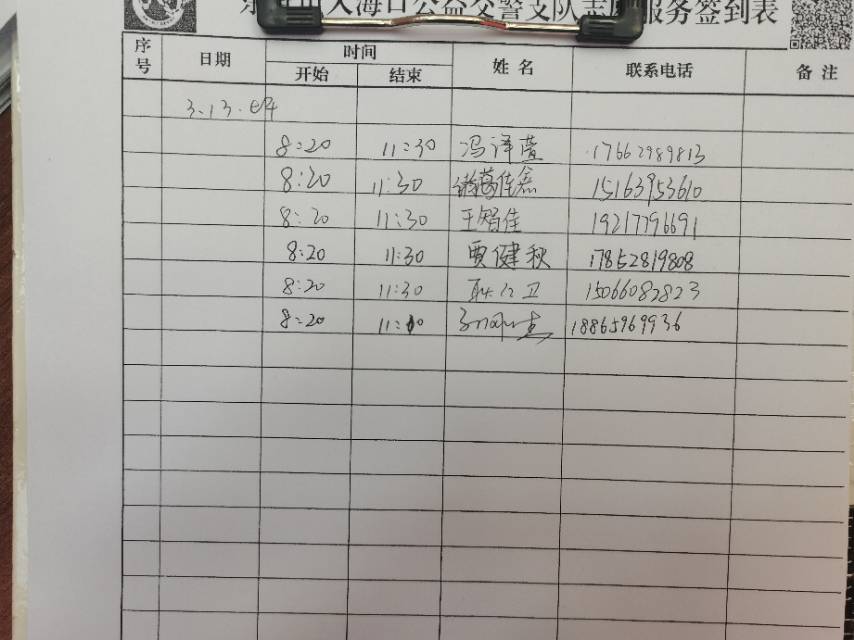 大海口公益交警支队志愿服务签到表
序号 日期 时间 姓名 联系电话 备注
开始 结束
3.13.
8:20 11:30 冯译萱 17662989813
8:20 11:30 佳鑫 15163953610
8:20 11:30 王智佳 19217796691
8:20 11:30 贾健秋 17852819808
8:20 11:30 15066082823
8:20 18865969936